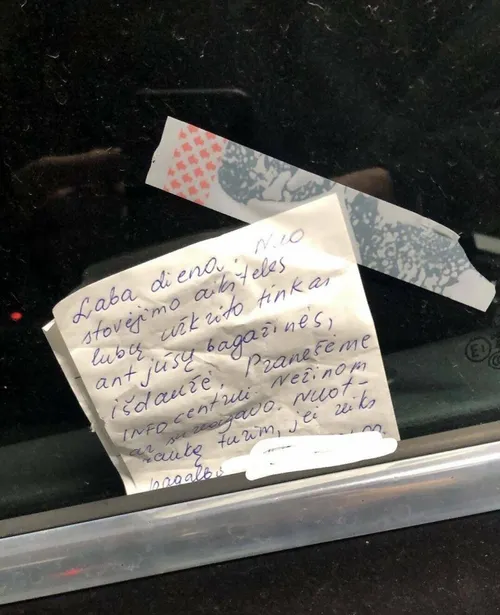 Laba diena. Nuo
stovėjimo aikšteles
lubų užkrito tinkas
ant jūsų bagažinės,
išdaužė. Pranešėme
INFO centrui Nežinom
ar su
Nuot-
rauką turim, jei reiks
pagalbos